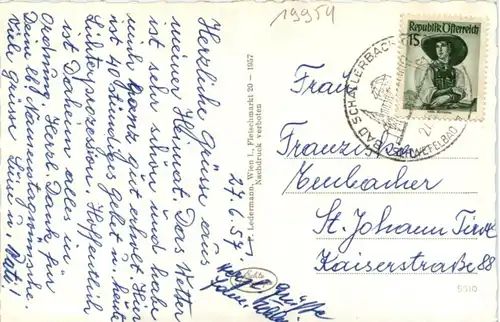 19954
Herzliche Grüsse aus
meiner Heimat. Das Wetter
ist sehr schön und habe
mich ganz gut erholt. Hier
ist 40 stündiges Gebet u. heute
Lichterprozession. Hoffentlich
ist Daheim alles in
Ordnung. Herzl. Dank für
Dein lb. Namenstagswünsche.
Viele Grüsse
27.6.57
Herzl. Grüße
P. Ledermann, Wien I., Fleischmarkt 20 - 1957
Nachdruck verboten
Republik Österreich
15
BAD SCHALLERBACH
SCHWEFELBAD
Frau
Franziska
Neubacher
St. Johann Tirol
Kaiserstraße 88
5310